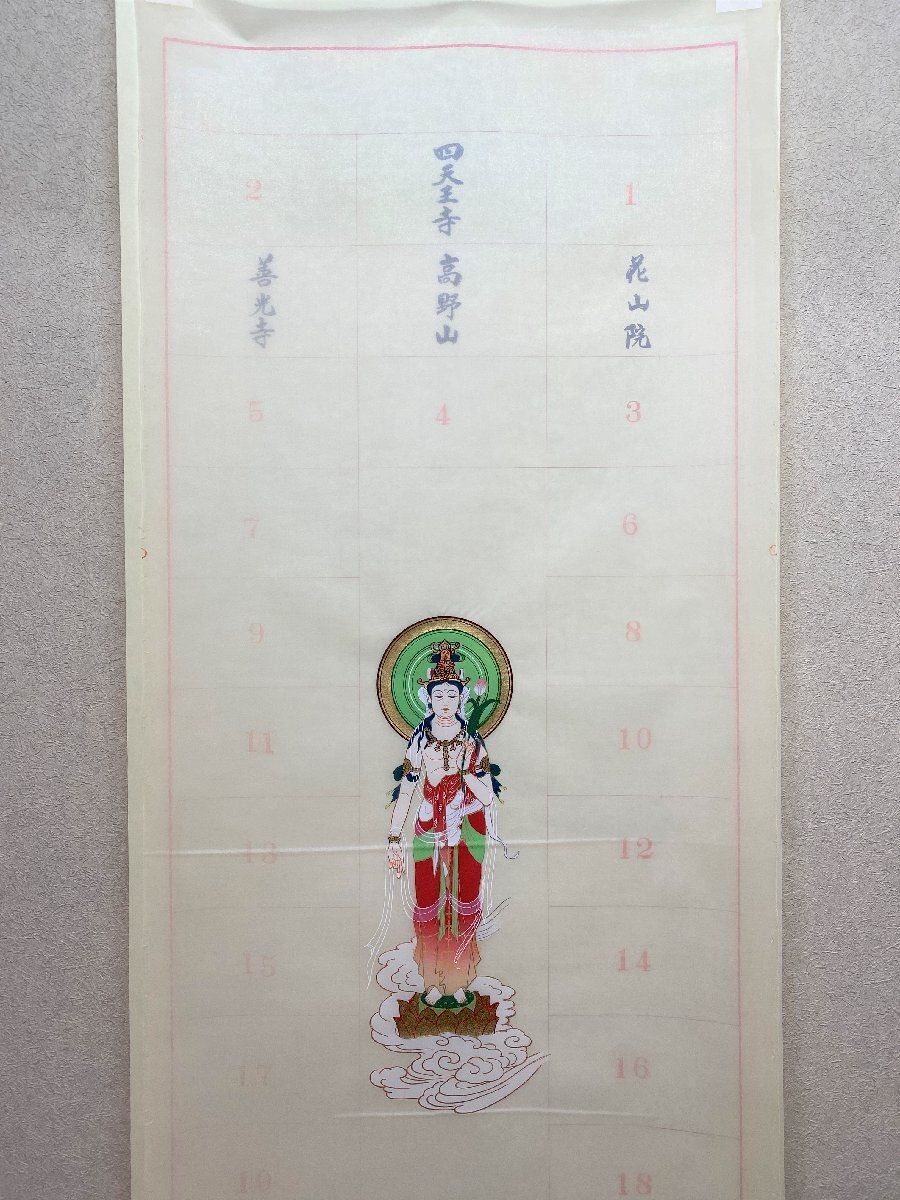 四天王寺
1
2
花山院
高野山
善光寺
3
4
5
6
7
8
9
10
11
12
13
14
15
16
17
18
19